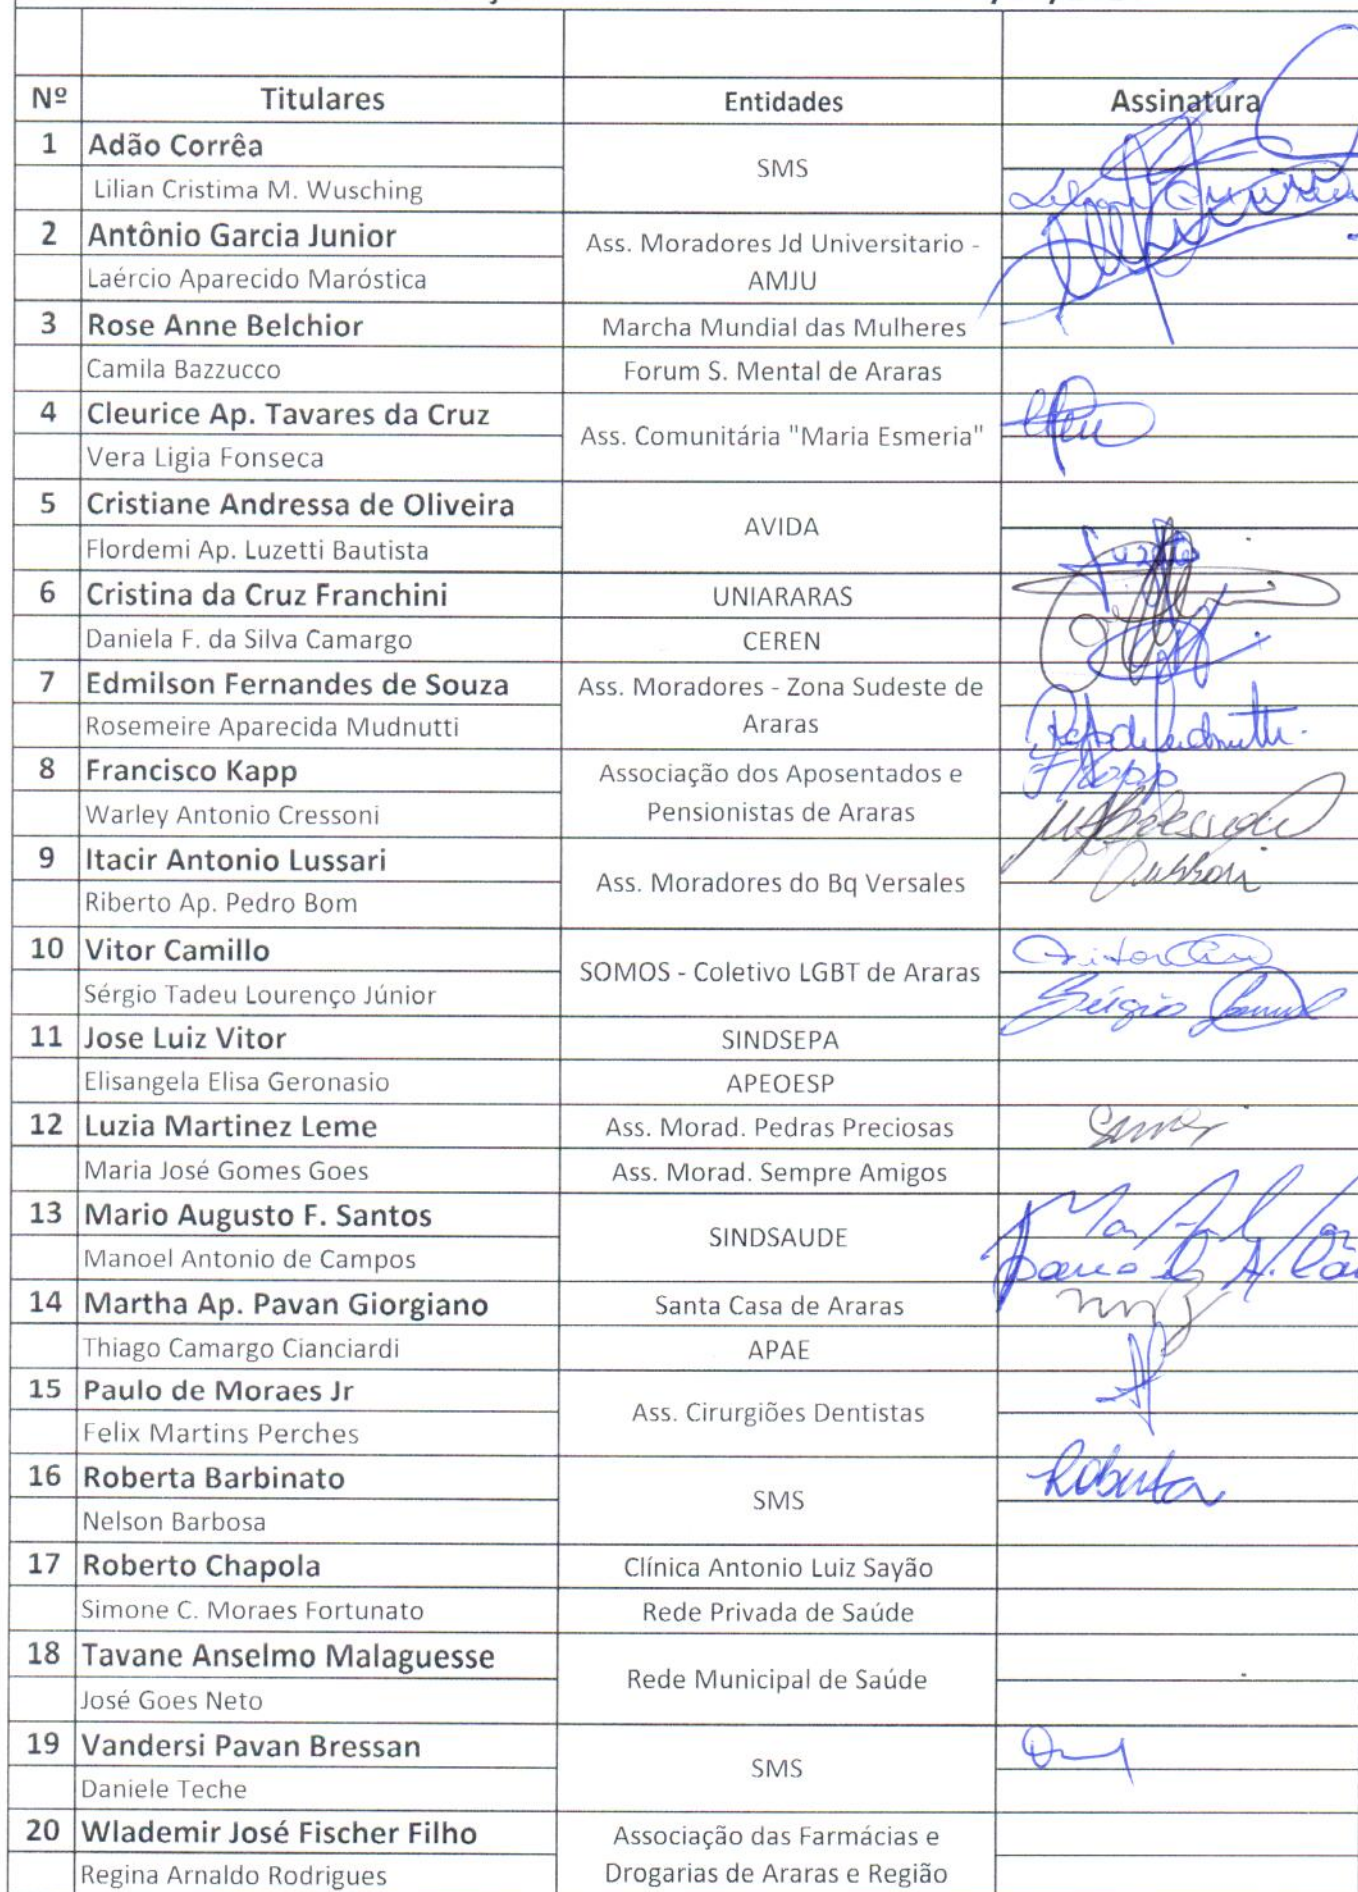 Nº Titulares Entidades Assinatura
1 Adão Corrêa
SMS
Lilian Cristima M. Wusching
2 Antônio Garcia Junior
Ass. Moradores Jd Universitario -
AMJU
Laércio Aparecido Maróstica
3 Rose Anne Belchior Marcha Mundial das Mulheres
Camila Bazzucco Forum S. Mental de Araras
4 Cleurice Ap. Tavares da Cruz
Ass. Comunitária "Maria Esmeria"
Vera Ligia Fonseca
5 Cristiane Andressa de Oliveira
AVIDA
Flordemi Ap. Luzetti Bautista
6 Cristina da Cruz Franchini UNIARARAS
Daniela F. da Silva Camargo CEREN
7 Edmilson Fernandes de Souza
Ass. Moradores - Zona Sudeste de
Araras
Rosemeire Aparecida Mudnutti
8 Francisco Kapp FKapp
Associação dos Aposentados e
Pensionistas de Araras
Warley Antonio Cressoni
9 Itacir Antonio Lussari
Ass. Moradores do Bq Versales
Riberto Ap. Pedro Bom
10 Vitor Camillo
SOMOS - Coletivo LGBT de Araras
Sérgio Tadeu Lourenço Júnior Sérgio
11 Jose Luiz Vitor SINDSEPA
Elisangela Elisa Geronasio APEOESP
12 Luzia Martinez Leme Ass. Morad. Pedras Preciosas
Maria José Gomes Goes Ass. Morad. Sempre Amigos
13 Mario Augusto F. Santos
SINDSAUDE
Manoel Antonio de Campos
14 Martha Ap. Pavan Giorgiano Santa Casa de Araras
Thiago Camargo Cianciardi APAE
15 Paulo de Moraes Jr
Ass. Cirurgiões Dentistas
Felix Martins Perches
16 Roberta Barbinato Roberta
SMS
Nelson Barbosa
17 Roberto Chapola Clínica Antonio Luiz Sayão
Simone C. Moraes Fortunato Rede Privada de Saúde
18 Tavane Anselmo Malaguesse
Rede Municipal de Saúde
José Goes Neto
19 Vandersi Pavan Bressan
SMS
Daniele Teche
20 Wlademir José Fischer Filho
Associação das Farmácias e
Drogarias de Araras e Região
Regina Arnaldo Rodrigues